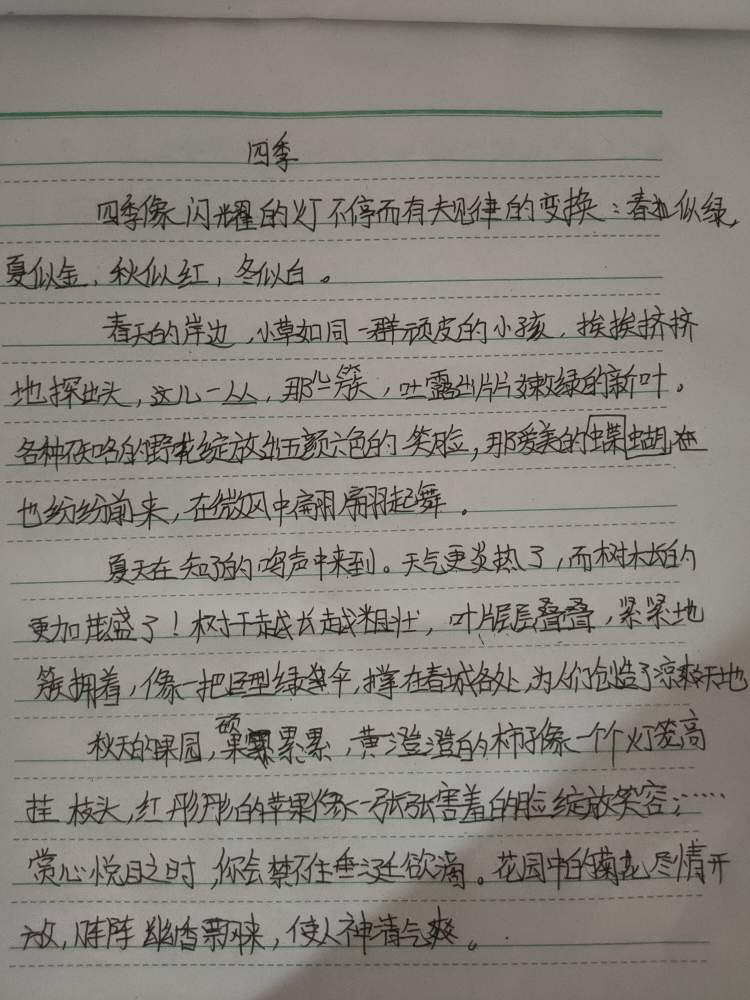 四季
四季像闪耀的灯不停而有大规律的变换：春似绿，
夏似金，秋似红，冬似白。
春天的岸边，小草如同一群顽皮的小孩，挨挨挤挤
地探出头，这儿一丛，那儿一簇，吐露出片片嫩绿的新叶。
各种不知名的野花绽放出五颜六色的笑脸，那爱美的蝴蝶
也纷纷前来，在微风中翩翩起舞。
夏天在知了的鸣声中来到。天气更炎热了，而树木长的
更加茂盛了！树干越长越粗壮，叶片层层叠叠，紧紧地
簇拥着，像一把巨型绿伞，撑在春城各处，为人们创造了凉爽天地
秋天的果园，硕果累累，黄澄澄的柿子像一个个灯笼高
挂枝头，红彤彤的苹果像一张张害羞的脸绽放笑容；……
赏心悦目之时，你会禁不住垂涎欲滴。花园中的菊花尽情开
放，阵阵幽香飘来，使人神清气爽。